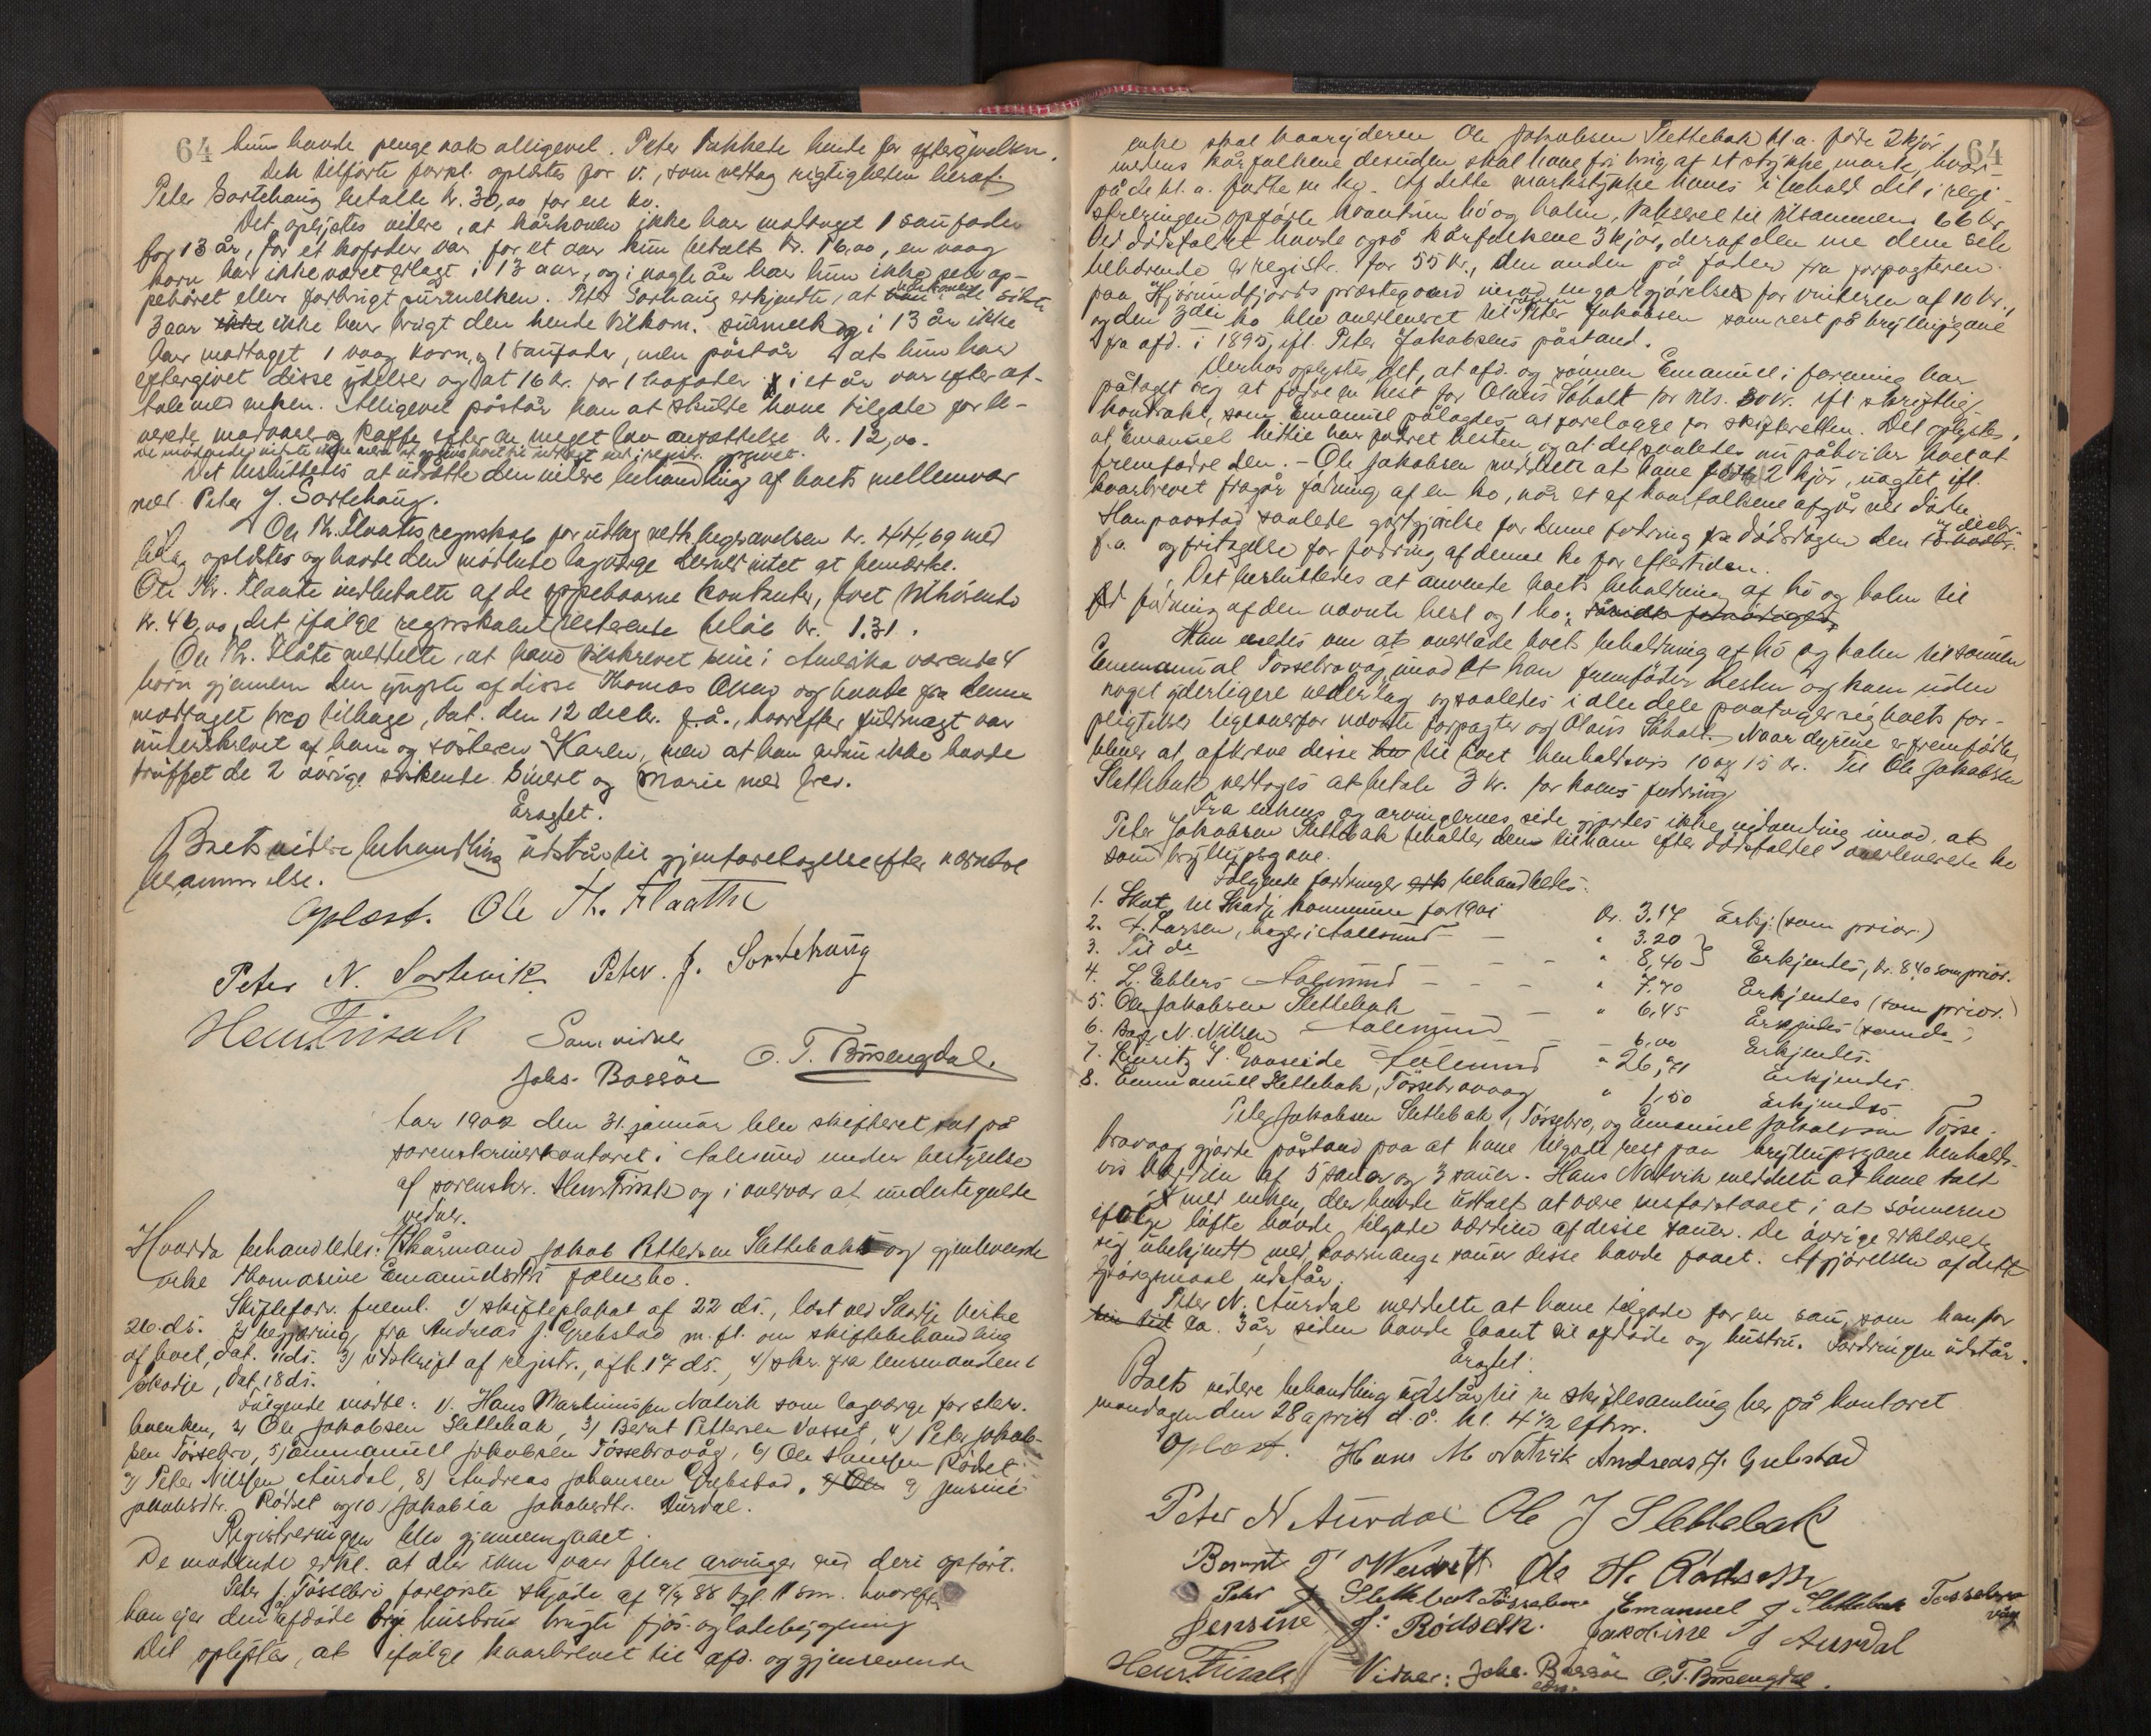 64 hun havde penge nok alligevel. Peter takkede hende for eftergivelsen.
Det tilførte forkl. oplæstes for v., som vedtog rigtigheden heraf.
Peter Sortehaug betalte kr. 30,00 for en ko.
Det oplystes videre, at kårkonen ikke har modtaget 1 saufoder
for 13 år, for et kofoder var for et aar kun betalt kr. 16,00, en vaag
korn har ikke været erlagt i 13 aar, og i nogle år har hun ikke selv op-
pebåret eller forbrugt surmelken. Peter Sortehaug erkjendte, at de sidste
3 aar ikke har brugt den hende tilkom. surmelk og i 13 år ikke
har modtaget 1 vaag korn, og 1 saufoder, men påstår at hun har
eftergivet disse ydelser og at 16 kr. for 1 kofoder i et år var efter af-
tale med enken. Alligevel påstår han at skulde have tilgode for le-
verede madvarer og kaffe efter en meget lav ansættelse kr. 12,00.
Det besluttedes at udsætte den videre behandling af boets mellemvær
med Peter J. Sortehaug.
Ole Th. Flaates regnskab for udlæg vedk. begravelsen kr. 44,69 med
bilag oplæstes og havde den mødende lagværge derved intet at bemærke.
Ole Th. Flaate indbetalte af de oppebaarne kontanter, boet tilhørende
kr. 46,00, det ifølge regnskabet resterende beløb kr. 1,31.
Ole Th. Flåte meddelte, at have tilskrevet sine i Amerika værende 4
børn gjennem den yngste af disse Thomas Olsen og havde fra denne
modtaget brev tilbage, dat. den 12 decbr. f. å., hvorefter fuldmagt var
underskrevet af ham og søsteren Karen, men at han endnu ikke havde
truffet de 2 øvrige søskende Sivert og Marie med brev.
Eragtet.
Boets videre behandling udstår til gjenforetagelse efter nærmere
berammelse.
Oplæst. Ole Th. Flaathe
Peter N. Sortevik Peter. J. Sortehaug
Henr. Frisak Som vidner
Johs. Bassøe O. T. Bøsengdal.
Aar 1902 den 31. januar blev skifteret sat på
sorenskriverkontoret i Aalesund under bestyrelse
af sorenskr. Henr. Frisak og i overvær af undertegnede
vidner.
Hvorda behandledes: Kårmand Jakob Pettersen Slettebak og gjenlevende
enke Thomasine Emanuelsdtr fælesbo.
Skiftefor. freml. 1) skifteplakat af 22 ds., læst ved Skodje kirke
26. ds. 2) begjæring fra Andreas J. Grebstad m. fl. om skiftebehandling
af boet, dat. 11 ds. 3) udskrift af registr., afh. 17 ds., 4) skr. fra lensmanden i
Skodje, dat. 18 ds.
Følgende mødte: 1. Hans Martinussen Natvik som lagværge for sterv-
boenken, 2) Ole Jakobsen Slettebak, 3) Bernt Pettersen Vasset, 4) Peter Jakob-
sen Tøssebro, 5) Emmanuell Jakobsen Tøssebrovåg, 6) Ole Hansen Rødset
7) Peter Nilssen Aurdal, 8) Andreas Johansen Grebstad, 9) Jensine
Jakobsdtr. Rødset og 10) Jakobia Jakobsdtr. Aurdal.
Registreringen blev gjennemgaaet.
De mødende erkl. at der ikke var flere arvinger end deri opført.
Peter J. Tøssebro foreviste skjøde af 9/4 88 tgl. 11 s.m. hvorefter
han ejer den af afdøde og hustru brugte fjøs- og ladebygning
Det oplystes, at ifølge kaarbrevet til afd. og gjenlevende
64
enke skal kaaryderen Ole Jakobsen Slettebak bl. a. føde 2 kjør,
medens kårfolkene desuden skal have fri brug af et stykke mark, hvor-
på de bl. a. fødte en ko. Af dette markstykke haves i behold det i regi-
streringen opførte kvantum hø og halm, takseret til tilsammen 66 kr.
Ved dødsfaldet havde også kårfolkene 3 kjør, deraf den ene dem selv
tilhørende er registr. for 55 kr., den anden på foder fra forpagteren
paa Hjørundfjords præstegaard imod en godtgjørelse for vinteren af 10 kr.,
og den 3die ko blev overleveret til sønnen Peter Jakobsen som rest på bryllupsgave
fra afd. i 1895, ifl. Peter Jakobsens påstand.
Derhos oplystes det, at afd. og sønnen Emanuel i forening har
påtaget sig at fodre en hest for Olaus Søholt for tils. 30 kr. ifl. skriftlig
kontrakt, som Emanuel pålagdes at forelægge for skifteretten. Det oplystes,
at Emanuel hittil har fodret hesten, og at det saaledes nu påhviler boet at
fremfodre den. - Ole Jakobsen meddelte at have født 2 kjør, uagtet ifl.
kaarbrevet fragår fødning af en ko, når et af kaarfolkene afgår ved døden
Han paastod saaledes godtgjørelse for denne fodring fra dødsdagen den
f. a. og fritagelse for fodring af denne ko for eftertiden.
Det besluttedes at anvende boets beholdning af hø og halm til
fodring af den nævnte hest og 1 ko.
Man enedes om at overlade boets beholdning af hø og halm til sønnen
Emmanuel Tossebrovag imod at han fremføder hesten og koen uden
noget yderligere vederlag og saaledes i alle dele paatager sig boets for-
pligtelser ligeoverfor nævnte forpagter og Olaus Søholt. Naar dyrene er fremfødte,
bliver at afkræve disse til boet henholdsvis 10 og 15 kr. Til Ole Jakobsen
Slettebak vedtages at betale 3 kr. for koens fodring
Fra enkens og arvingernes side gjordes ikke indvending imod, at
Peter Jakobsen Slettebak beholder den til ham efter dødsfaldet overleverede ko
som bryllupsgave.
Følgende fordringer behandledes:
1. Skat til Skodje kommune for 1901 Kr. 3.17 Erkj. (som prior.)
2. A. Larsen, bager i Aalesund - - " 3.20
3. Til do - - " 8,40 } Erkjendes, kr. 8,40 som prior.
4. L. Ehlers Aalesund - - - " 7.70 Erkjendes (som prior.)
5. Ole Jakobsen Slettebak - " 6,45 Erkjendes (som do)
6. Bag. N. Nilsen Aalesund - - 6,00 Erkjendes.
7. Lauritz J. Gaaseide Aalesund " 26,71 Erkjendes.
8. Emmanuell Slettebak, Tøssebrovaag " 1,50 Erkjendes
Peter Jakobsen Slettebak, Tøssebro, og Emanuel Jakobsen Tøsse-
brovaag gjorde påstand paa at have tilgode rest paa bryllupsgave henholds-
vis værdien af 5 sauer og 3 sauer. Hans Natvik meddelte at have talt
med enken, der havde udtalt at være uforstaaet i at sønnerne
ifølge løfte havde tilgode værdien af disse sauer. De øvrige erklærede
sig ubekjendt med, hvormange sauer disse havde faaet. Afgjørelsen af dette
spørgsmaal udstår.
Peter N. Aurdal meddelte at have tilgode for en sau, som han for
ca. 3 år siden havde laant til afdøde og hustru. Fordringen udstår.
Eragtet:
Boets videre behandling udstår til en skiftesamling her på kontoret
mandagen den 28 april d. å. kl. 4 1/2 efterm.
Oplæst. Hans M. Natvik Andreas J. Grebstad
Peter N Aurdal Ole J Slettebak
Bernt P Wasset Ole H. Rødseth
Peter J Slettebak Tøssebro Emanuel J Slettebak Tøssebro
våg
Jensine J. Rødseth. Jakobine J Aurdal
Henr. Frisak Vidner: Johs. Bassøe O. T. Bøsengdal.